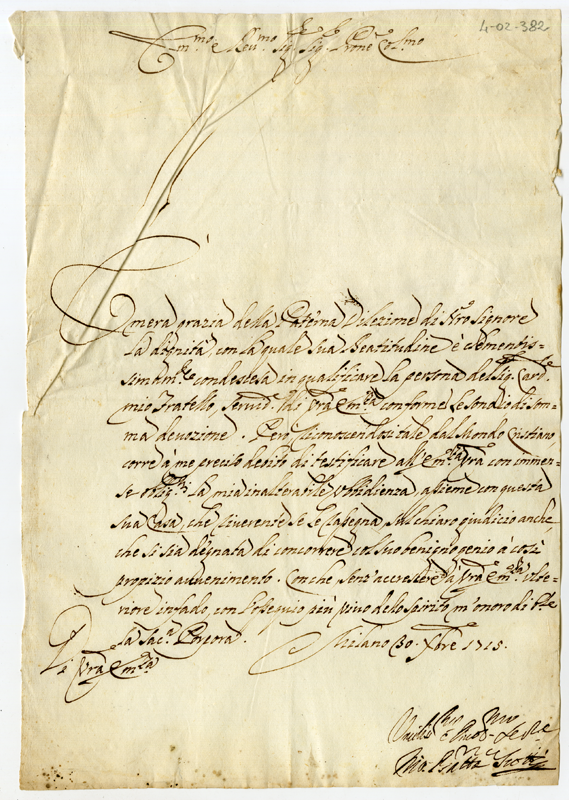 4-02-382
Em.mo e Rev.mo Sig.r Sig.r Prone Col.mo
È mera grazia della Paterna Dilezione di Nro Signore
la dignità, con la quale Sua Beatitudine è Clementis-
simam.te condescesa in qualificare la persona del Sig.r Card.le
mio Fratello, Servid.re di Vra Em.za conforme le sono io di som-
ma devozione. Però riconoscendosi tale dal Mondo Cristiano
corre à me preciso debito di testificare all' Em.za Vra con immen-
se la mia inalterabile Vbbidienza, assieme con questa
sua Casa, che riverente se le rasegna, sul chiaro giudicio anche,
che si sia degnata di concorrere col suo benigno genio à così
propizio avvenimento. Con che senz' accrescere à Vra Em.za vlte-
riore infado, con l'ossequio più vivo dello spirito m'onoro di
la Sac.a Porpora.
Milano 30. Xbre 1715.
Di Vra Em.za